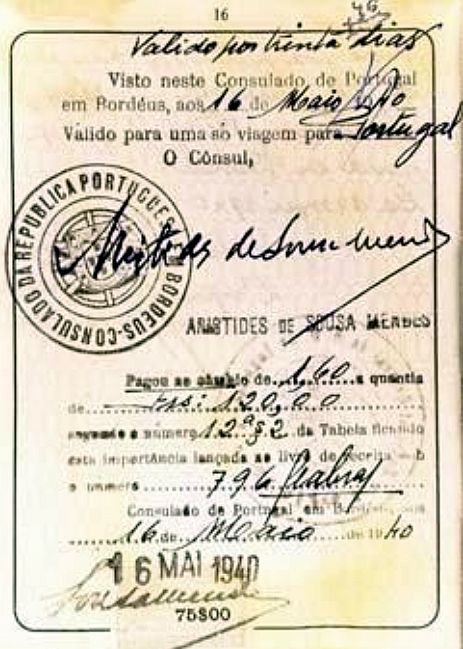 16
46
Valido por trinta dias
Visto neste Consulado, de Portugal
em Bordéus, aos 16 de Maio 1940
Válido para uma só viagem para Portugal
O Cônsul,
CONSULADO DA REPUBLICA PORTUGUESA BORDEUS
Aristides de Sousa Mendes
ARISTIDES DE SOUSA MENDES
Pagou ao câmbio de 1.60 a quantia
de 120,00
segundo o número 12ª § 2 da Tabela ficando
esta importância lançada no livro de receita
o número 796
Consulado de Portugal em Bordéus, aos
16 de Maio de 1940
16 MAI 1940
Sousa Mendes
75$00